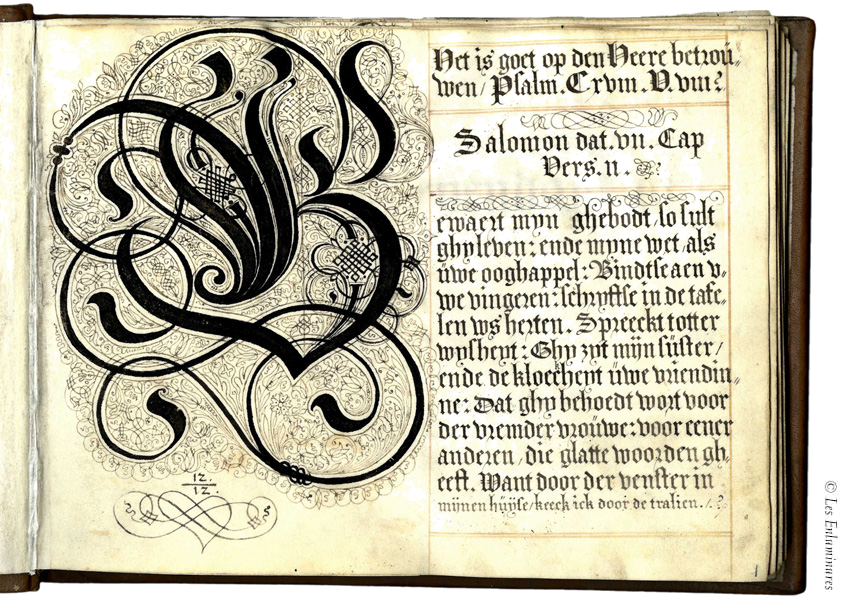 B
12.
12.
Het is goet op den Heere betroŭ
wen / Psalm. Cxviii. V. viii.
Salomon dat. vii. Cap
Vers. ii.
ewaert myn ghebodt / so sult
ghy leven: ende myne wet / als
ŭwe ooghappel: Bindtse aen v„
we vingeren: schryftse in de tafe„
len ws herten. Spreeckt totter
wysheyt: Ghy zyt mijn sŭster /
ende de kloecheyt ŭwe vriendin„
ne: Dat ghy behoedt wort voor
der vremder vroŭwe: voor eener
anderen / die glatte woorden gh„
eeft. Want door der venster in
mijnen hŭÿse / keeck ick door de tralien. /.
1
© Les Enluminures